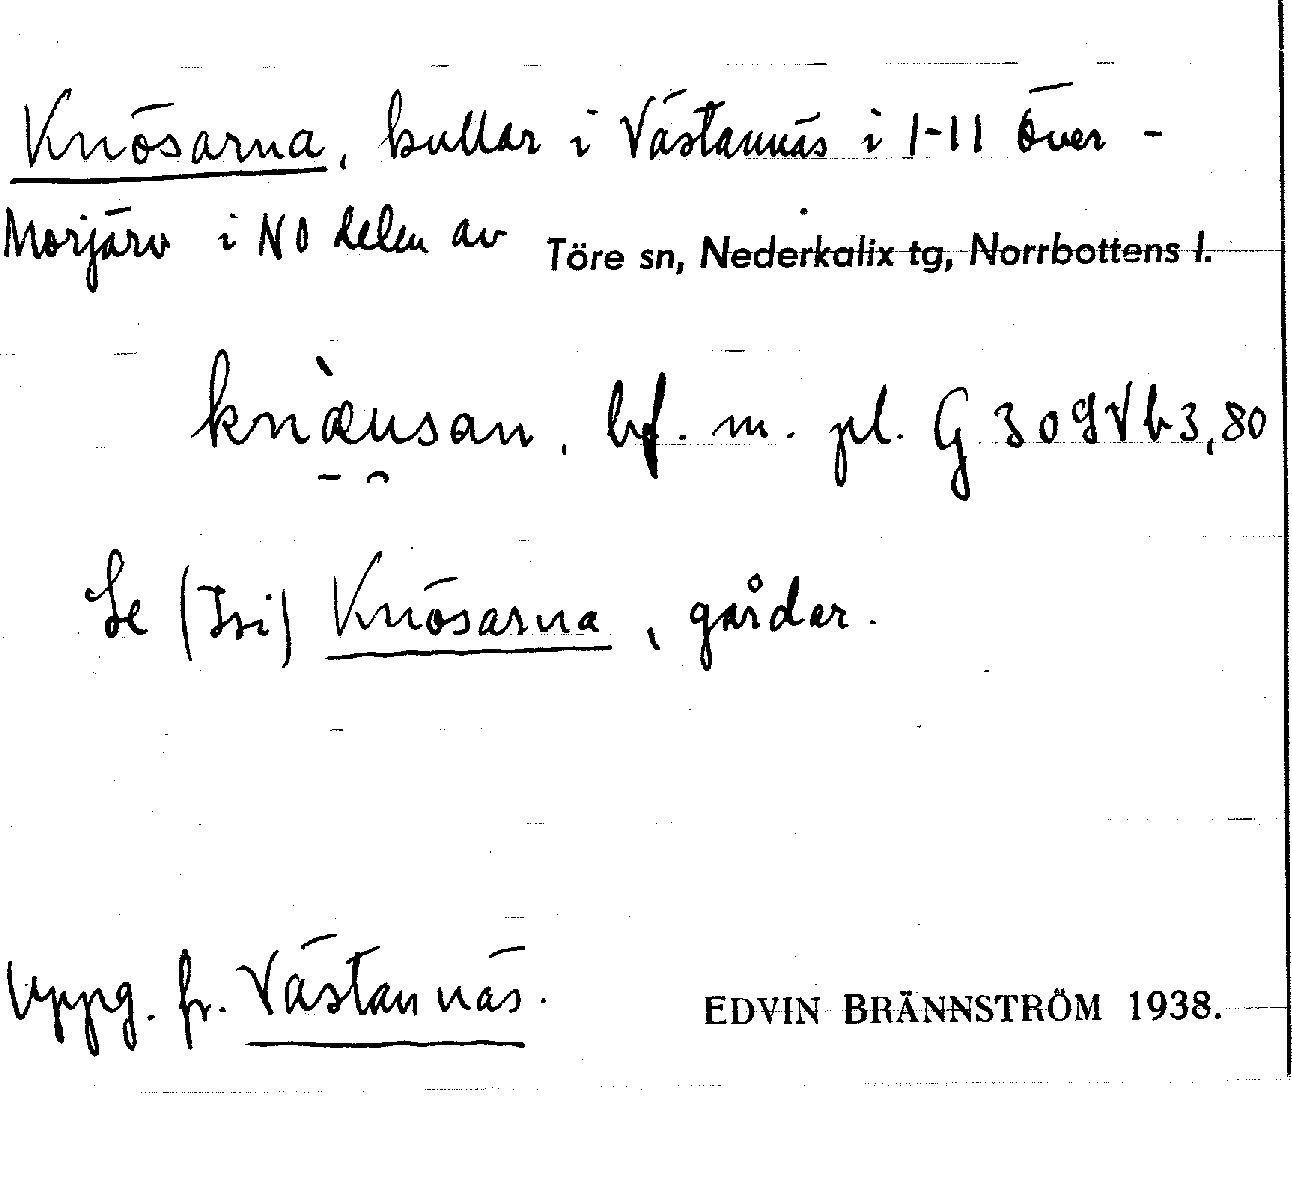 Knösarna, kullar i Västannäs i 1-11 Över-
Morjärv i NO delen av Töre sn, Nederkalix tg, Norrbottens l.
knæ̀usan, bf. m. pl. G 309 Vb 3,80
Se (Tri) Knösarna, gårdar.
Uppg. fr. Västannäs. EDVIN BRÄNNSTRÖM 1938.